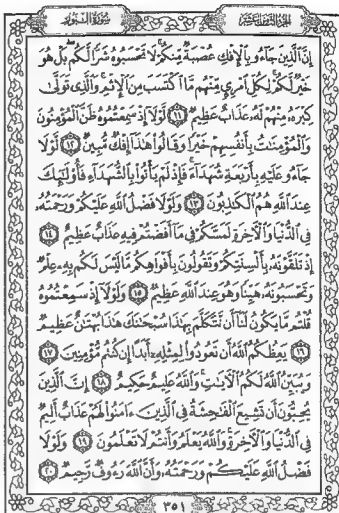 الجزء الثامن عشر
سورة النور
إِنَّ ٱلَّذِينَ جَآءُو بِٱلْإِفْكِ عُصْبَةٌ مِّنكُمْ لَا تَحْسَبُوهُ شَرًّا لَّكُم بَلْ هُوَ
خَيْرٌ لَّكُمْ لِكُلِّ ٱمْرِئٍ مِّنْهُم مَّا ٱكْتَسَبَ مِنَ ٱلْإِثْمِ وَٱلَّذِى تَوَلَّىٰ
كِبْرَهُۥ مِنْهُمْ لَهُۥ عَذَابٌ عَظِيمٌ ١١ لَّوْلَآ إِذْ سَمِعْتُمُوهُ ظَنَّ ٱلْمُؤْمِنُونَ
وَٱلْمُؤْمِنَٰتُ بِأَنفُسِهِمْ خَيْرًا وَقَالُوا۟ هَٰذَآ إِفْكٌ مُّبِينٌ ١٢ لَّوْلَا
جَآءُو عَلَيْهِ بِأَرْبَعَةِ شُهَدَآءَ فَإِذْ لَمْ يَأْتُوا۟ بِٱلشُّهَدَآءِ فَأُو۟لَٰٓئِكَ
عِندَ ٱللَّهِ هُمُ ٱلْكَٰذِبُونَ ١٣ وَلَوْلَا فَضْلُ ٱللَّهِ عَلَيْكُمْ وَرَحْمَتُهُۥ
فِى ٱلدُّنْيَا وَٱلْءَاخِرَةِ لَمَسَّكُمْ فِى مَآ أَفَضْتُمْ فِيهِ عَذَابٌ عَظِيمٌ ١٤
إِذْ تَلَقَّوْنَهُۥ بِأَلْسِنَتِكُمْ وَتَقُولُونَ بِأَفْوَاهِكُم مَّا لَيْسَ لَكُم بِهِۦ عِلْمٌ
وَتَحْسَبُونَهُۥ هَيِّنًا وَهُوَ عِندَ ٱللَّهِ عَظِيمٌ ١٥ وَلَوْلَآ إِذْ سَمِعْتُمُوهُ
قُلْتُم مَّا يَكُونُ لَنَآ أَن نَّتَكَلَّمَ بِهَٰذَا سُبْحَٰنَكَ هَٰذَا بُهْتَٰنٌ عَظِيمٌ
١٦ يَعِظُكُمُ ٱللَّهُ أَن تَعُودُوا۟ لِمِثْلِهِۦٓ أَبَدًا إِن كُنتُم مُّؤْمِنِينَ ١٧
وَيُبَيِّنُ ٱللَّهُ لَكُمُ ٱلْءَايَٰتِ وَٱللَّهُ عَلِيمٌ حَكِيمٌ ١٨ إِنَّ ٱلَّذِينَ
يُحِبُّونَ أَن تَشِيعَ ٱلْفَٰحِشَةُ فِى ٱلَّذِينَ ءَامَنُوا۟ لَهُمْ عَذَابٌ أَلِيمٌ
فِى ٱلدُّنْيَا وَٱلْءَاخِرَةِ وَٱللَّهُ يَعْلَمُ وَأَنتُمْ لَا تَعْلَمُونَ ١٩ وَلَوْلَا
فَضْلُ ٱللَّهِ عَلَيْكُمْ وَرَحْمَتُهُۥ وَأَنَّ ٱللَّهَ رَءُوفٌ رَّحِيمٌ ٢٠
٣٥١